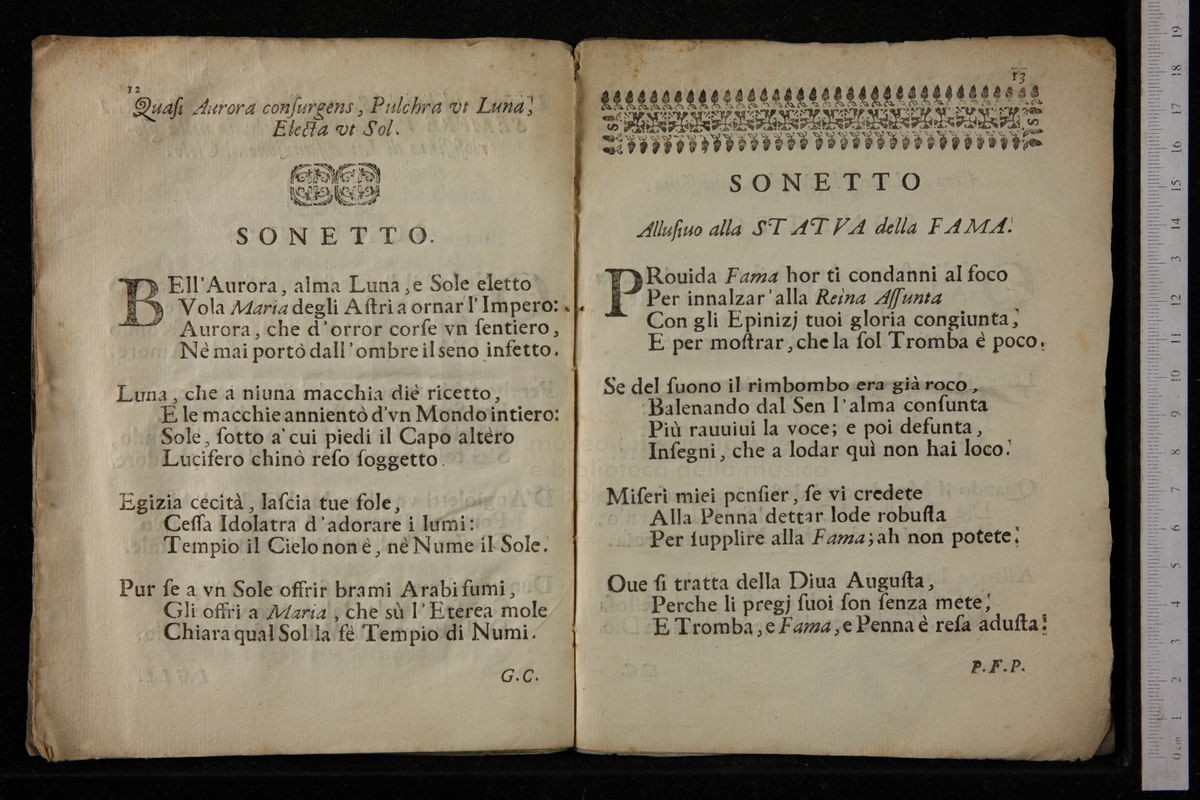 12
Quaſi Aurora conſurgens, Pulchra vt Luna,
Electa vt Sol.
SONETTO.
BEll'Aurora, alma Luna, e Sole eletto
Vola Maria degli Aſtri a ornar l'Impero:
Aurora, che d'orror corſe vn ſentiero,
Nè mai portò dall'ombre il seno infetto.
Luna, che a niuna macchia diè ricetto,
E le macchie annientò d'vn Mondo intiero:
Sole, ſotto a' cui piedi il Capo altero
Lucifero chinò reſo ſoggetto.
Egizia cecità, laſcia tue fole,
Ceſſa Idolatra d'adorare i lumi:
Tempio il Cielo non è, nè Nume il Sole.
Pur ſe a vn Sole offrir brami Arabi fumi,
Gli offri a Maria, che sù l'Eterea mole
Chiara qual Sol la fè Tempio di Numi.
G.C.
13
SONETTO
Alluſiuo alla STATVA della FAMA.
PRouida Fama hor ti condanni al foco
Per innalzar'alla Reina Aſſunta
Con gli Epinizj tuoi gloria congiunta,
E per moſtrar, che la ſol Tromba è poco.
Se del ſuono il rimbombo era già roco,
Balenando dal Sen l'alma conſunta
Più rauuiui la voce; e poi defunta,
Inſegni, che a lodar quì non hai loco.
Miſeri miei penſier, ſe vi credete
Alla Penna dettar lode robuſta
Per ſupplire alla Fama; ah non potete.
Oue ſi tratta della Diua Auguſta,
Perche li pregj ſuoi ſon ſenza mete,
E Tromba, e Fama, e Penna è reſa aduſta.
P.F.P.